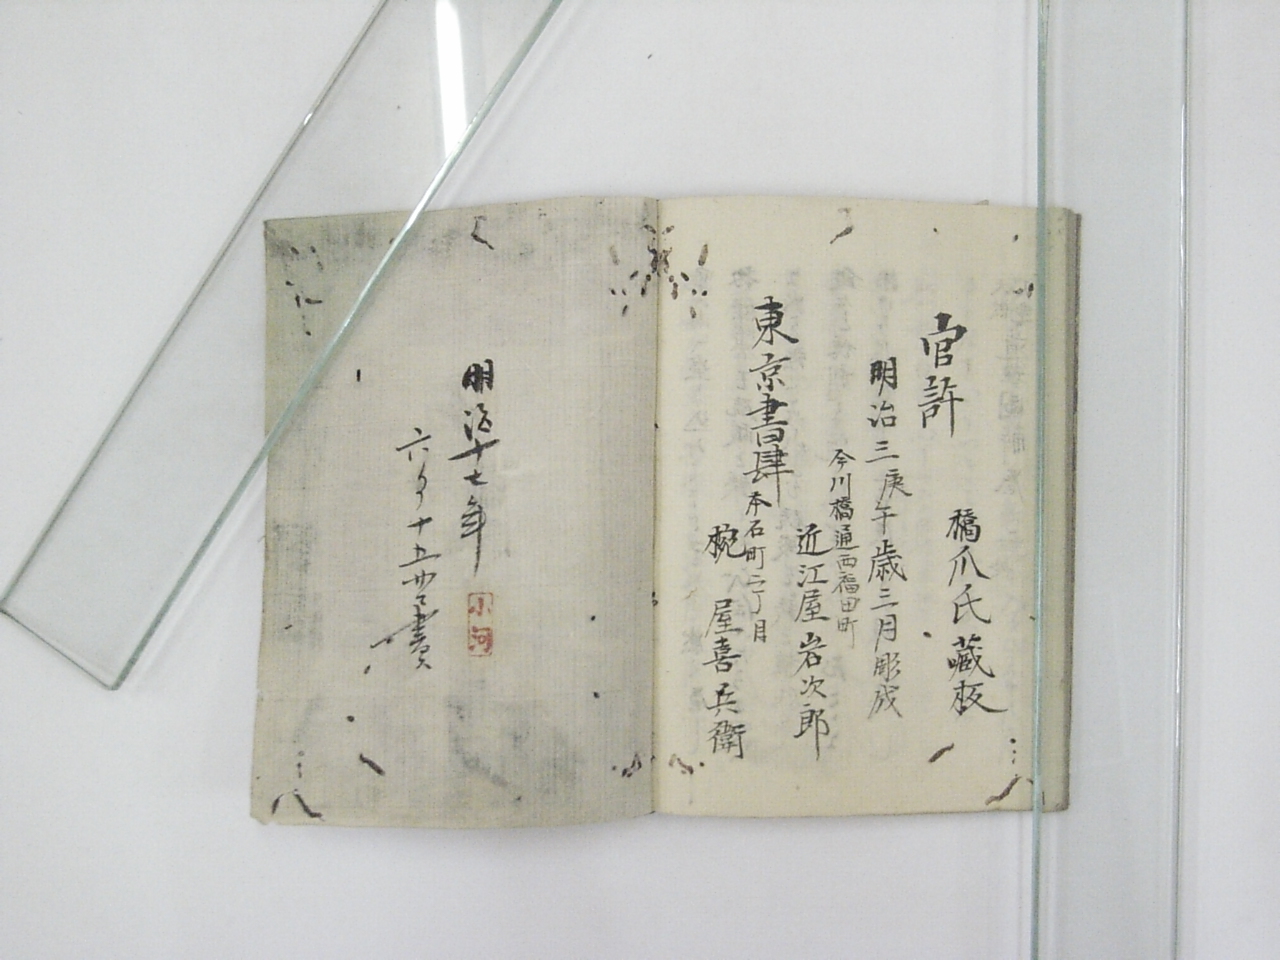 官許
橋爪氏藏板
明治三庚午歳三月彫成
今川橋通西福田町
近江屋岩次郎
東京書肆
本石町二丁目
椀屋喜兵衛
明治十七年
六月十五日書
小河